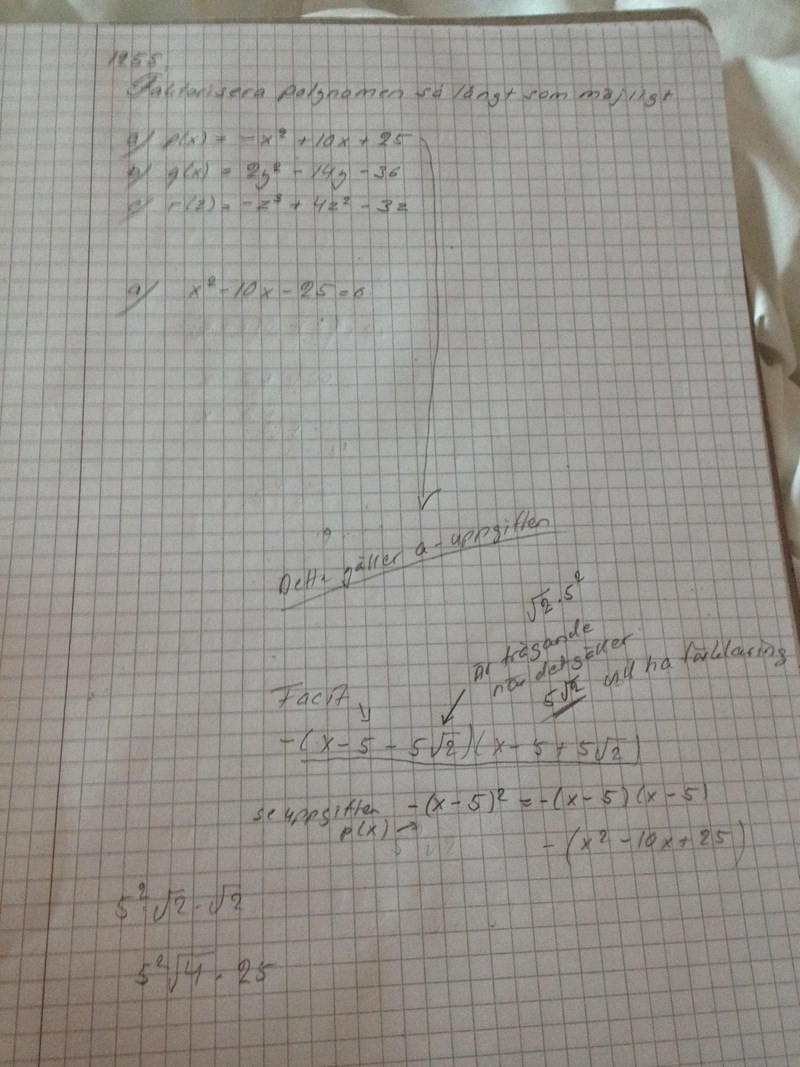 1255
Faktorisera polynomen så långt som möjligt
a) p(x) = -x² + 10x + 25
b) g(x) = 2y² - 14y - 36
c) r(z) = -z³ + 4z² - 3z
a) x² - 10x - 25 = 0
Detta gäller a-uppgiften
√2 · 5²
är frågande
när det gäller
5√2 vill ha förklaring
Facit
-(x - 5 - 5√2)(x - 5 + 5√2)
se uppgiften -(x - 5)² = -(x - 5)(x - 5)
p(x) → -(x² - 10x + 25)
5² √2 · √2
5² √4 · 25